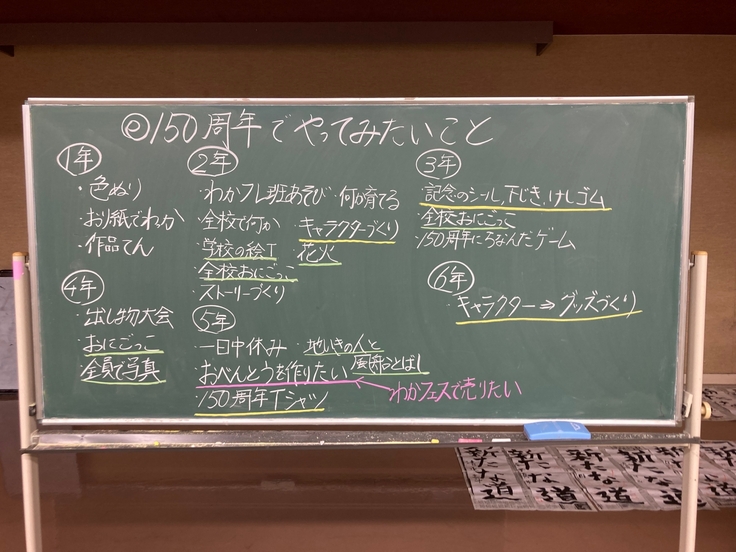 め150周年でやってみたいこと
1年
・色ぬり
・お手紙でわか
・作品てん
2年
・わかフレ班あそび ・何か育てる
・全校で何か ・キャラクターづくり
・学校の絵T ・花火
・全校おにごっこ
・ストーリーづくり
3年
・記念のシール,下じき,けしゴム
・全校おにごっこ
・150周年にちなんだゲーム
4年
・出し物大会
・おにごっこ
・全員で写真
5年
・一日中休み ・地いきの人と
・おべんとうを作りたい 風船とばし
・150周年Tシャツ
わかフェスで売りたい
6年
・キャラクター⇒グッズづくり
新たな道
新たな道
新たな道
新たな道